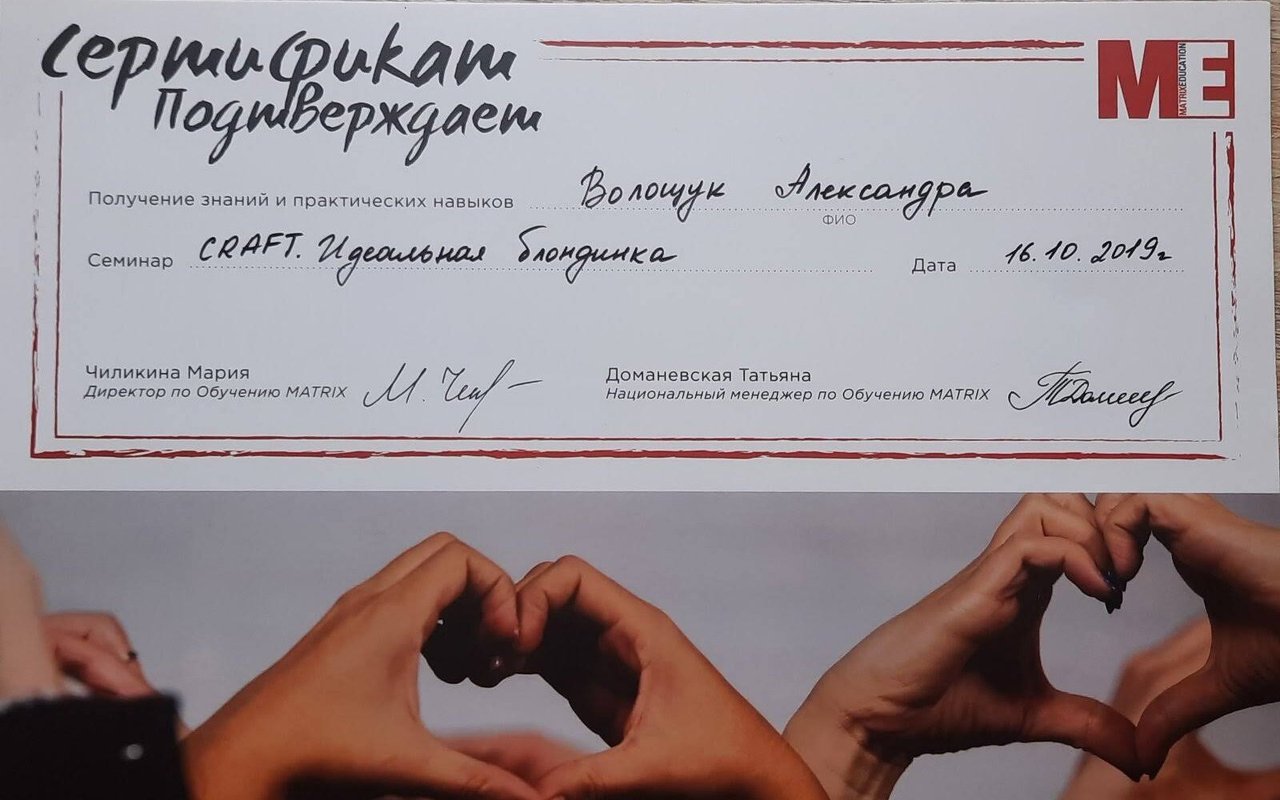 Сертификат
Подтверждает
ME
MATRIXEDUCATION
Получение знаний и практических навыков Волощук Александра
ФИО
Семинар CRAFT. Идеальная блондинка Дата 16.10.2019г
Чиликина Мария
Директор по Обучению MATRIX
Доманевская Татьяна
Национальный менеджер по Обучению MATRIX